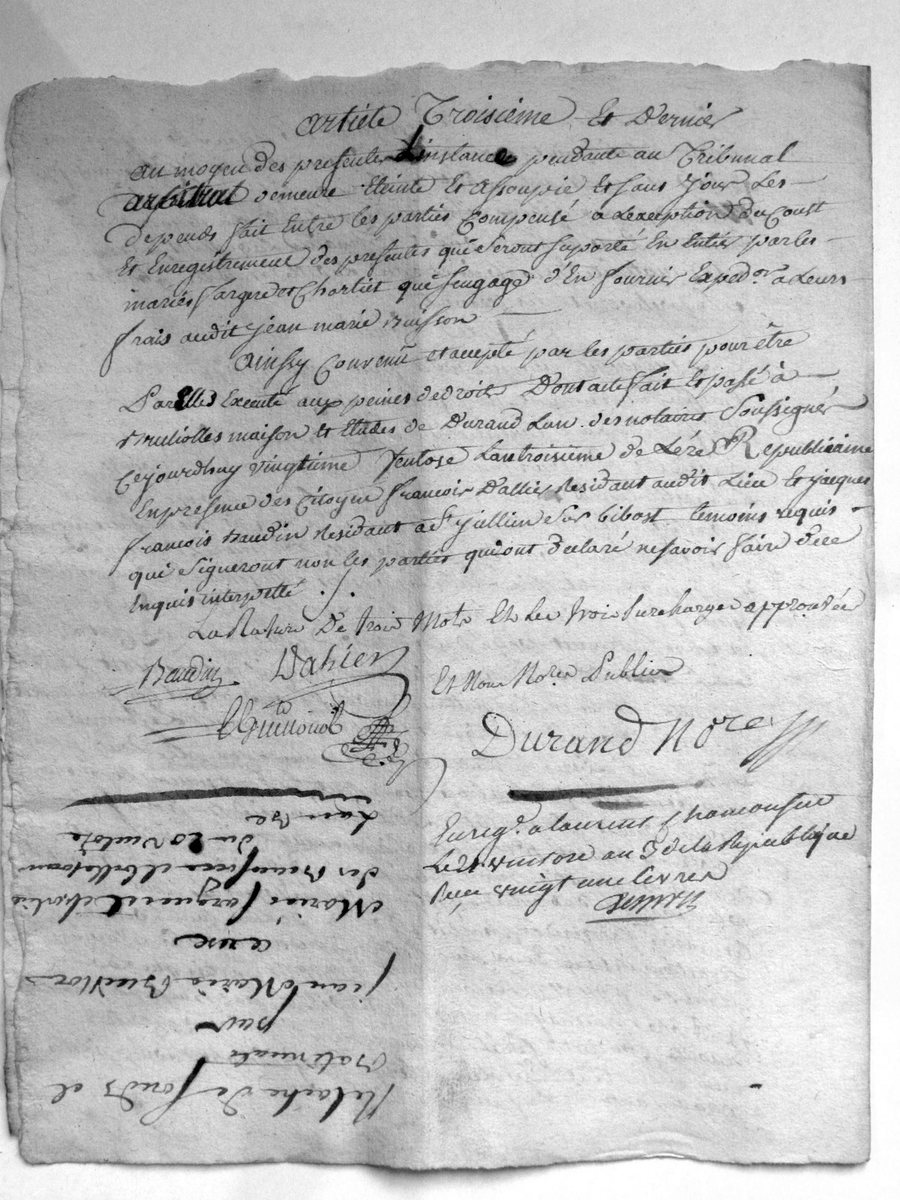 article Troisieme Et Dernier
au moyen des presentes Linstance pendante au Tribunal
arbitral demeure Eteinte Et assoupie Et sans jour Les
depends fait Entre les parties Compensé a Lexception du Coust
Et Enregistrement des presentes qui seront suporté En Entier par les
mariés fargere et Chartiet qui sengage d'En fournir Exped.on a Leurs
frais audit jean marie Buisson
Ainssy Convenu et accepté par les parties pour être
Par Elles Executé aux peines de droits Dont acte fait Et passé à
Bruliolles maison Et Etudes de Durand Lun des notaires Soussignés
Cejourdhuy vingtieme Ventose Lan troisieme de Lére Republicaine
En presence des Citoyens francois Dallier Residant audit Lieu Et jacques
francois Baudin Residant a St jullien Sur bibost temoins requis
qui Signeront non les parties qui ont déclaré ne savoir faire de ce
Enquis interpellé
La Rature De trois Mots Et Les trois Surcharges approuvée
Baudin Dahier Et Nous No.res Publics
Durand No.re
Enreg. a laurent chamousset
Le 21 ventose an 3 de la Republique
Reçu vingt une livres
Relache de fonds et
par
jean Marie Buisson
aux
Mariés fargere et Chartiet
Du 20 Ventose
Lan 3e